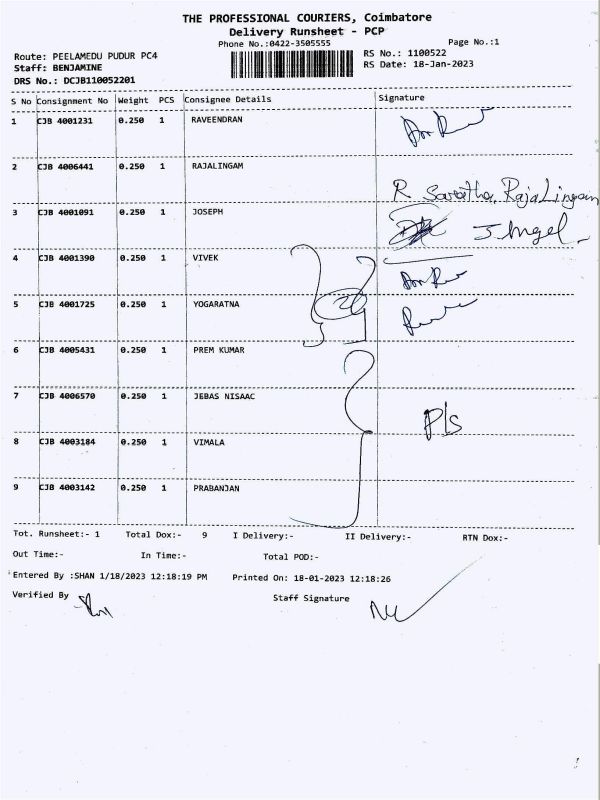 THE PROFESSIONAL COURIERS, Coimbatore
Delivery Runsheet - PCP
Phone No.:0422-3505555 Page No.:1
Route: PEELAMEDU PUDUR PC4 RS No.: 1100522
Staff: BENJAMINE RS Date: 18-Jan-2023
DRS No.: DCJB110052201
S No Consignment No Weight PCS Consignee Details Signature
1 CJB 4001231 0.250 1 RAVEENDRAN
2 CJB 4006441 0.250 1 RAJALINGAM
R Saraitha. RajaLingam
3 CJB 4001091 0.250 1 JOSEPH J. Angel.
4 CJB 4001390 0.250 1 VIVEK
5 CJB 4001725 0.250 1 YOGARATNA
6 CJB 4005431 0.250 1 PREM KUMAR
7 CJB 4006570 0.250 1 JEBAS NISAAC
P/s
8 CJB 4003184 0.250 1 VIMALA
9 CJB 4003142 0.250 1 PRABANJAN
Tot. Runsheet:- 1 Total Dox:- 9 I Delivery:- II Delivery:- RTN Dox:-
Out Time:- In Time:- Total POD:-
Entered By :SHAN 1/18/2023 12:18:19 PM Printed On: 18-01-2023 12:18:26
Verified By Staff Signature